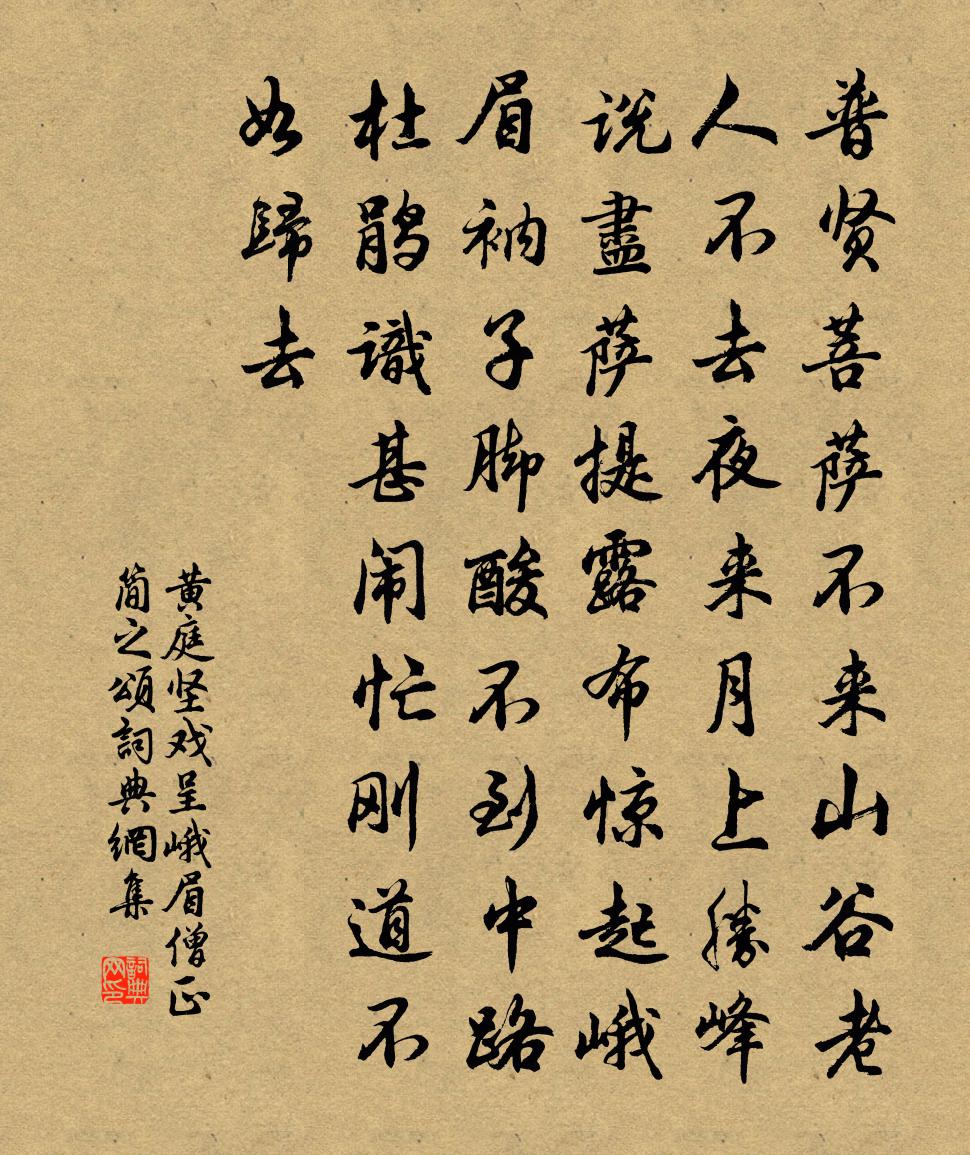 普贤菩萨不来山谷老
人不去夜来月上勝峰
说盡萨提露布惊起峨
眉衲子脚酸不到中路
杜鹃識甚闹忙刚道不
如歸去
黄庭坚戏呈峨眉僧正
简之頌詞典網集
詞典
网印